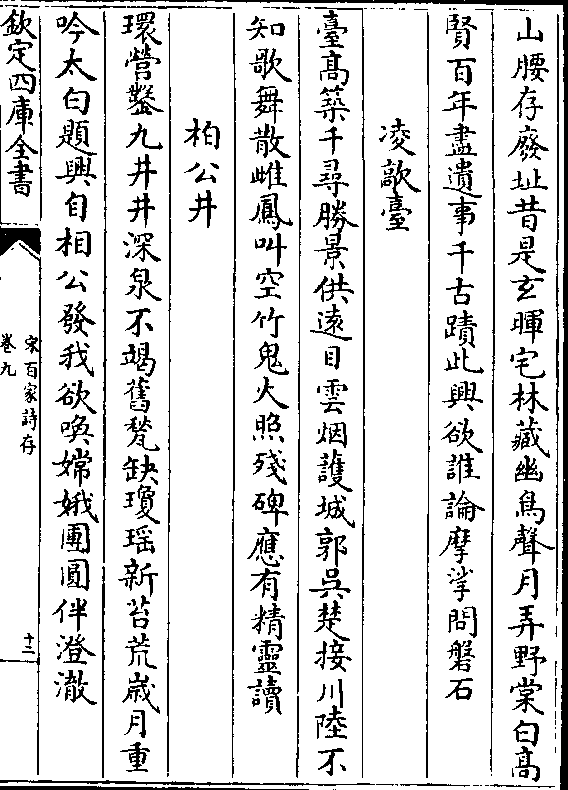 山腰存廢址昔是玄暉宅林藏幽鳥聲月弄野棠白高
賢百年盡遺事千古蹟此興欲誰論摩挲問磐石
凌歊臺
臺高築千尋勝景供遠目雲烟護城郭吳楚接川陸不
知歌舞散雌鳳叫空竹鬼火照殘碑應有精靈讀
柏公井
環營鑿九井井深泉不竭舊甃缺瓊瑶新苔荒嵗月重
吟太白題興自相公發我欲喚嫦娥團圓伴澄澈
欽定四庫全書
宋百家詩存
卷九
十三